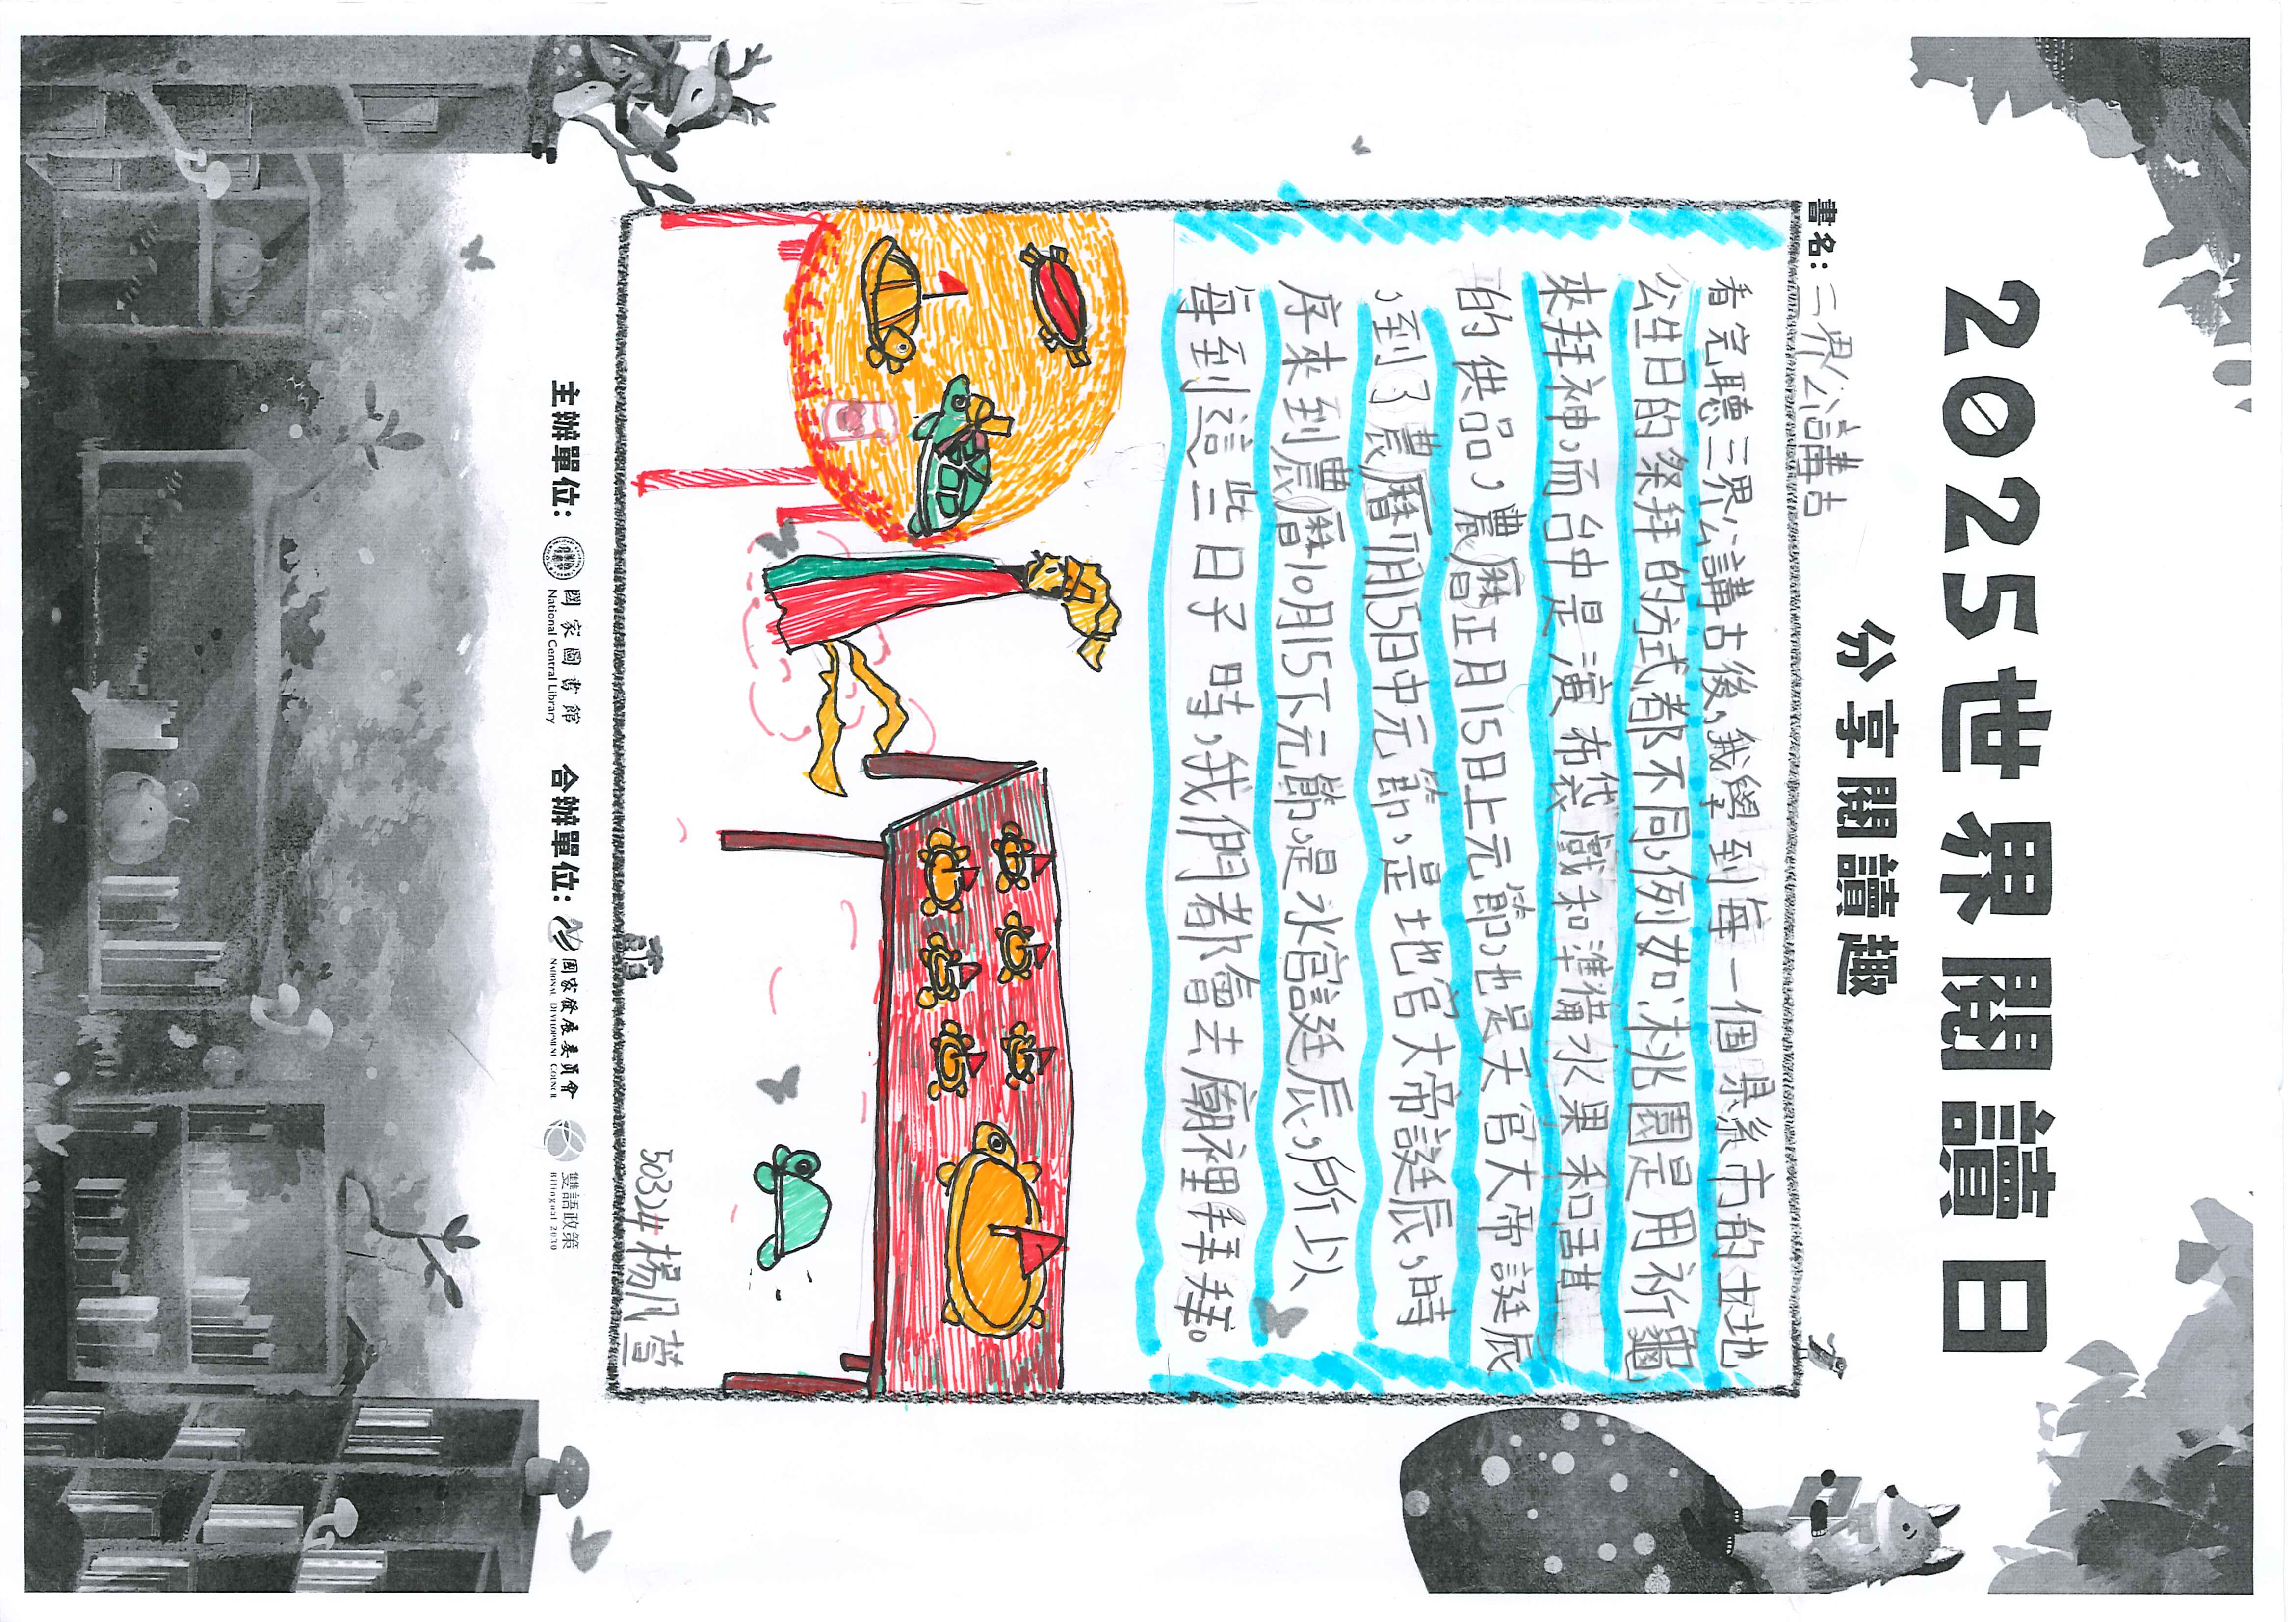 2025世界閱讀日
分享閱讀趣
書名：三界公講古
看完聽三界公講古後，我學到每一個縣市的土地
公生日的祭拜的方式都不同，例如：桃園是用祈龜
來拜神。而台中是演布袋戲和準備水果和活其
的供品，農曆正月15日上元節，也是天官大帝誕辰
，到了農曆7月15日中元節，是地官大帝誕辰，時
序來到農曆10月15下元節，是水官誕辰，所以
每到這些日子時，我們都會去廟裡拜拜。
50324楊月萱
主辦單位：國家圖書館 合辦單位：國家發展委員會 雙語政策
National Central Library NATIONAL DEVELOPMENT COUNCIL Bilingual 2030